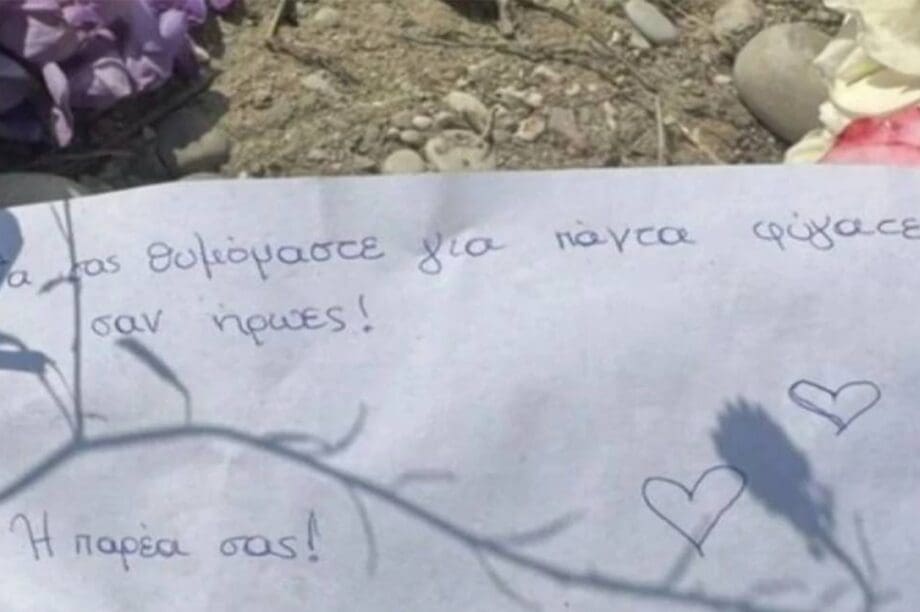 θα σας θυμόμαστε για πάντα φύγατε
σαν ήρωες!
Η παρέα σας!